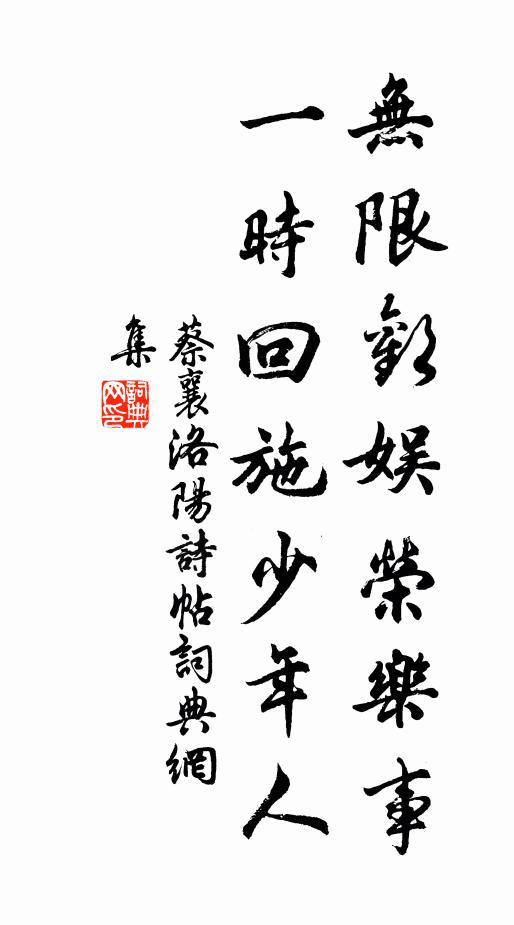 無限歡娛榮樂事
一時回施少年人
蔡襄洛陽詩帖詞典網
集
詞典
网印